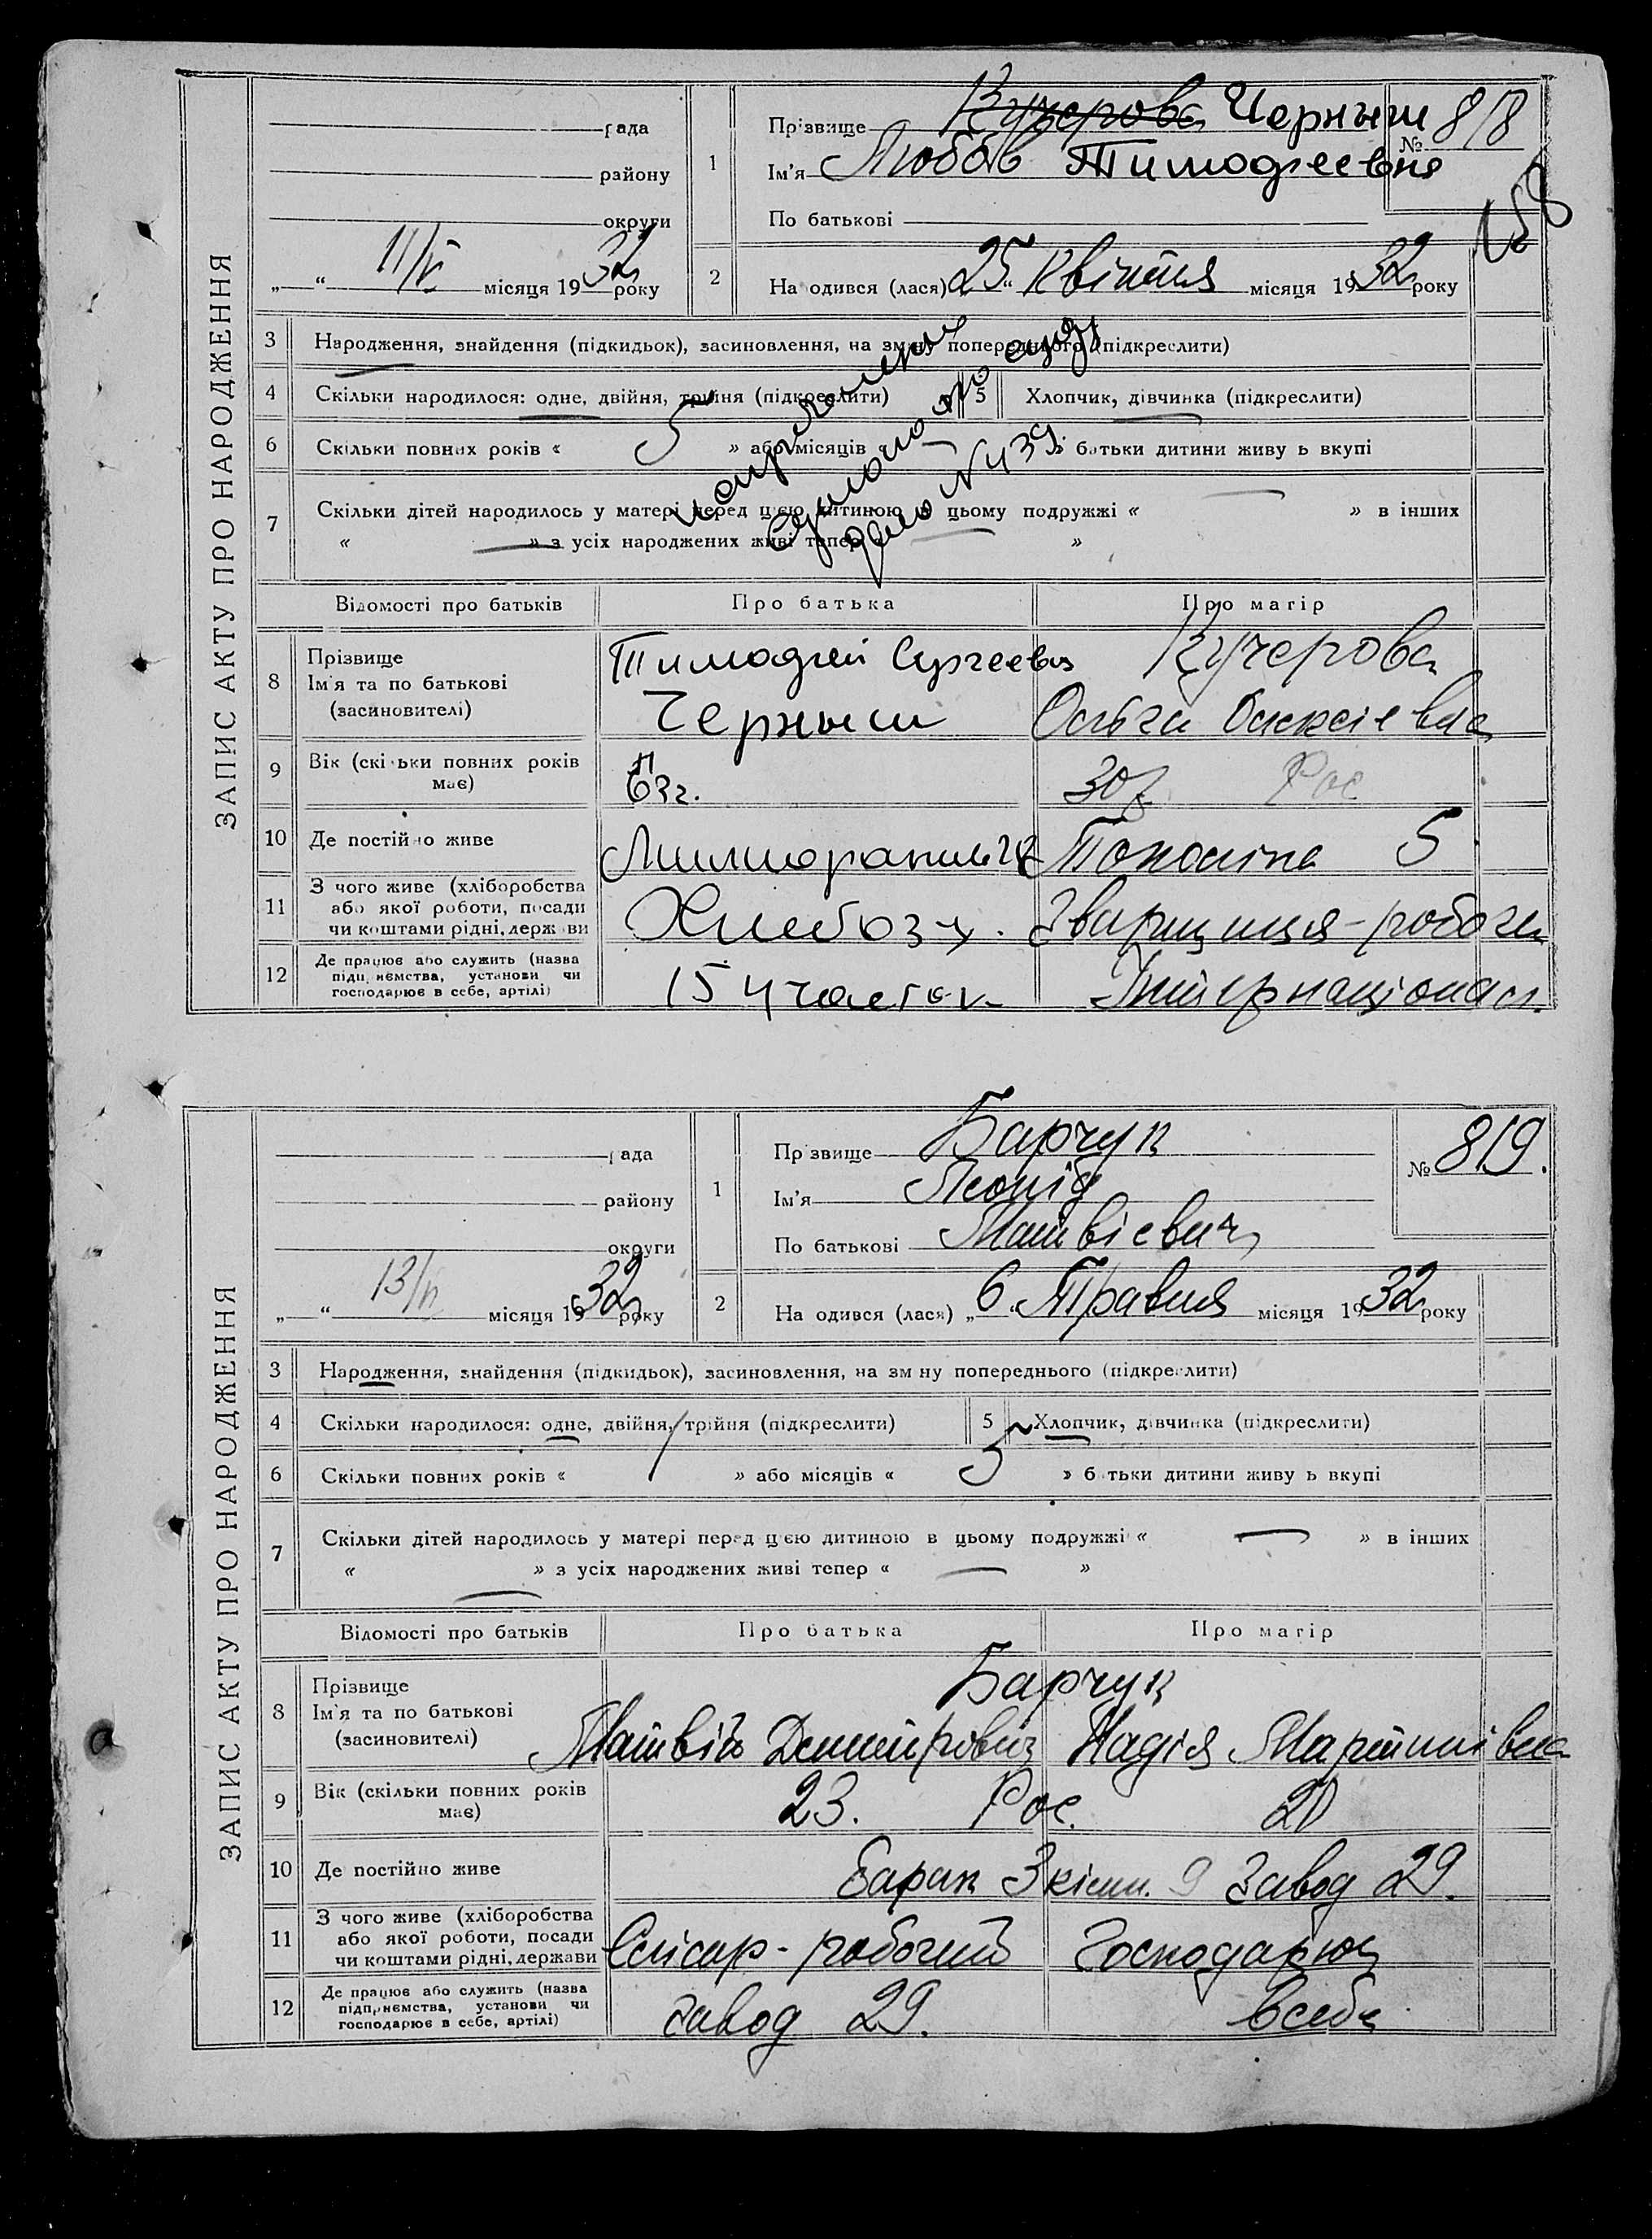 ЗАПИС АКТУ ПРО НАРОДЖЕННЯ
рада
району
округи
„ “ 11/VI місяця 1932 року
1
Прізвище Кучерова Черныш
№ 818
Ім'я Любов Тимофеевна
По батькові
158
2
Народився (лася) 25 “ Квітня місяця 1932 року
3 Народження, знайдення (підкидьок), засиновлення, на зміну попереднього (підкреслити)
4 Скільки народилося: одне, двійня, трийня (підкреслити)
5 Хлопчик, дівчинка (підкреслити)
6 Скільки повних років « 5 » або місяців « » батьки дитини живуть вкупі
7 Скільки дітей народилось у матері перед цією дитиною в цьому подружжі « » в інших
« » з усіх народжених живі тепер « »
дело № 439
Відомості про батьків
Про батька
Про матір
8 Прізвище
Ім'я та по батькові
(засиновителі)
Тимофей Сергеевич
Черныш
Кучерова
Ольга Олексіевна
9 Вік (скільки повних років
має)
30 Рос
10 Де постійно живе
Тополіна 5
11 З чого живе (хліборобства
або якої роботи, посади
чи коштами рідні, держави
Зварщиця-робоча
12 Де працює або служить (назва
підприємства, установи чи
господарює в себе, артілі)
15 участок
Інтернаціонал.
ЗАПИС АКТУ ПРО НАРОДЖЕННЯ
рада
району
округи
„ “ 13/VI місяця 1932 року
1
Прізвище Барчук
№ 819.
Ім'я Леонід
По батькові Матвієвич
2
Народився (лася) „ 6 “ Травня місяця 1932 року
3 Народження, знайдення (підкидьок), засиновлення, на зміну попереднього (підкреслити)
4 Скільки народилося: одне, двійня, трійня (підкреслити)
5 Хлопчик, дівчинка (підкреслити)
6 Скільки повних років « 1 » або місяців « 5 » батьки дитини живуть вкупі
7 Скільки дітей народилось у матері перед цією дитиною в цьому подружжі « » в інших
« » з усіх народжених живі тепер « »
Відомості про батьків
Про батька
Про матір
8 Прізвище
Ім'я та по батькові
(засиновителі)
Барчук
Матвій Демитрович
Надія Мартинівна
9 Вік (скільки повних років
має)
23. Рос. 20
10 Де постійно живе
Барак 3 кімн. 9 Завод 29.
11 З чого живе (хліборобства
або якої роботи, посади
чи коштами рідні, держави
Слісар-робочий
Господарює
12 Де працює або служить (назва
підприємства, установи чи
господарює в себе, артілі)
завод 29.
в себе